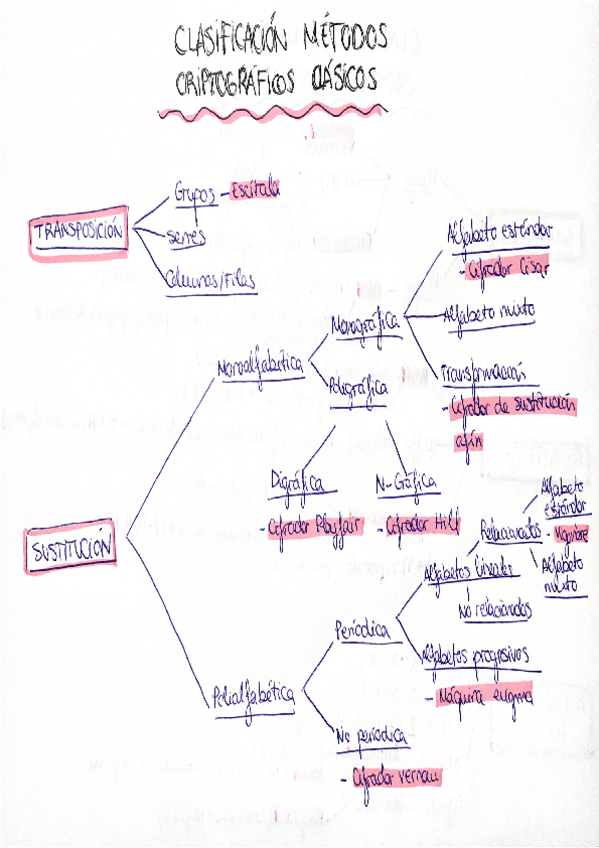 CLASIFICACIÓN MÉTODOS
CRIPTOGRÁFICOS CLÁSICOS
TRANSPOSICIÓN
Grupos - Escítala
series
Columnas/Filas
SUSTITUCIÓN
Monoalfabética
Monográfica
Alfabeto estándar
- Cifrador César
Alfabeto mixto
Transformación
- Cifrador de sustitución
afín
Poligráfica
Digráfica
- Cifrador Playfair
N-Gráfica
- Cifrador Hill
Polialfabética
Periódica
Alfabetos lineales
Relacionados
Alfabeto
estándar
Alfabeto
mixto
No relacionados
Alfabetos progresivos
- Máquina enigma
No periódica
- Cifrador vernam